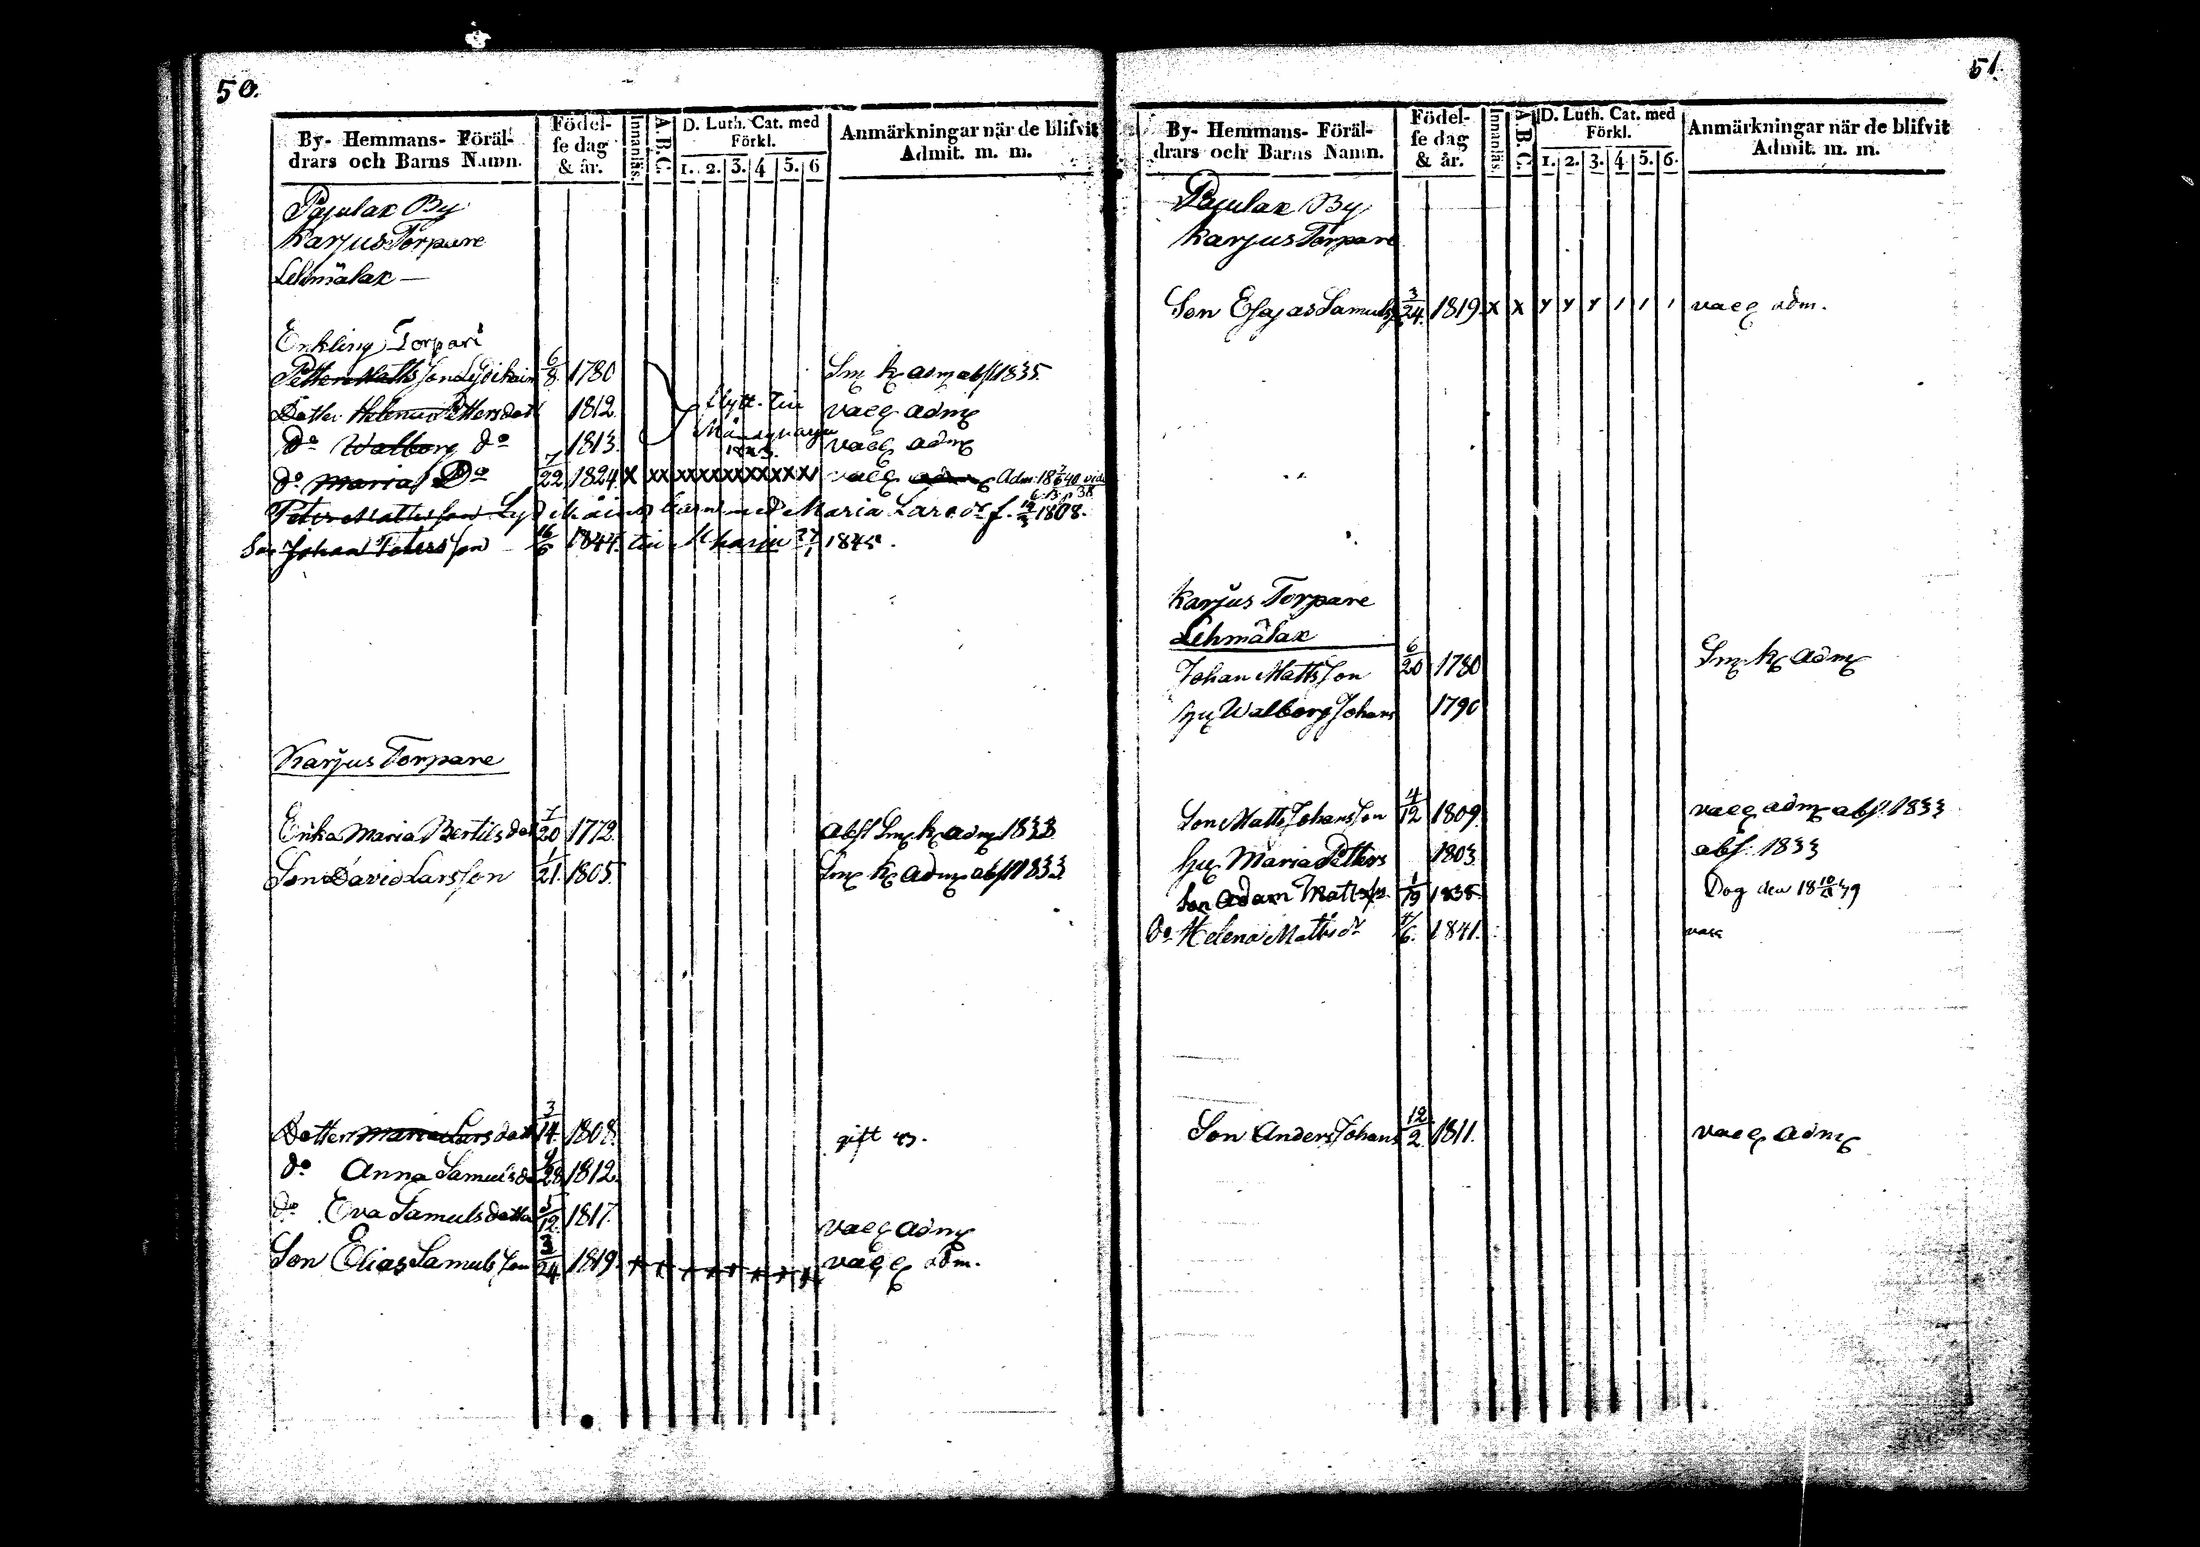 50.
By- Hemmans- Föräl-
drars och Barns Namn.
Födel-
se dag
& år.
Innanläs.
A.B.C.
D. Luth. Cat. med
Förkl.
1. 2. 3. 4 5. 6
Anmärkningar när de blifvit
Admit. m. m.
Pajulax By
Karjus Torpare
Lehmälax —
Enkling Torpari
Petter Matsson 6/8 1780 Sm. k. adm abs 1835.
Dotter Helena Pettersdott 1812. flytt. till vacc adm
do Walborg do 1813. vacc adm
do Maria Do 7/22 1824 x xx xxxxxxxxxxx vacc Adm. 18 40
Petter Mattsson med Maria Larsdr f. 1808.
Son Johan Petersson 16/6 1844. till 1845.
Karjus Torpare
Erika Maria Bertilsdot 7/20 1772. abst Sm. k. adm 1833
Son David Larsson 1/21 1805. Sm. k. adm abs 1833.
Dotter Maria Larsdott 3/14 1808. gift 43.
do Anna Samuelsd 28 1812.
do Eva Samulsdotter 12 1817. vacc adm
Son Elias Samulsson 3/24 1819. vacc adm.
51.
By- Hemmans- Föräl-
drars och Barns Namn.
Födel-
se dag
& år.
Innanläs.
A.B.C.
D. Luth. Cat. med
Förkl.
1. 2. 3. 4 5. 6.
Anmärkningar när de blifvit
Admit. m. m.
Pajulax By
Karjus Torpare
Son Esajas Samuls 3/24. 1819. x x y y y / / / vacc adm.
Karjus Torpare
Lehmälax
Johan Mattsson 6/20 1780 Sm. k. adm
hu Walborg Johans 1790
Son Matts Johansson 4/12 1809. vacc adm abs. 1833
hu Maria Petters 1803 abs: 1833
Son Adam Mattss. 1/19 1838 Dog den 18 10/ 49
Do Helena Mattsdr 4/6. 1841. vacc
Son Anders Johans 12/2 1811. vacc adm